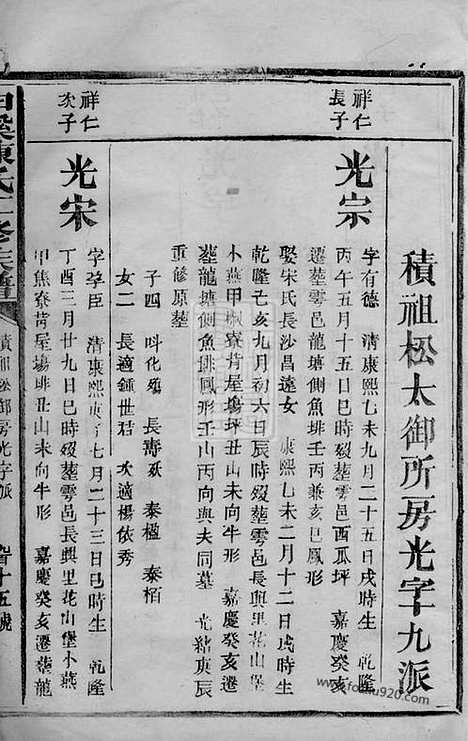 積祖松太御所房光字十九派
祥仁
長子
光宗
字有德 清康熙乙未九月二十五日戌時生 乾隆
丙午五月十五日巳時歿塟雲邑西瓜坪 嘉慶癸亥
遷塟雲邑龍塘側魚排壬丙兼亥巳鳳形
娶宋氏長沙昌遠女 康熙乙未二月十二日戌時生
乾隆己亥九月初六日辰時歿塟雲邑長興里花山堡
小燕甲椒寮背屋塲坪丑山未向牛形 嘉慶癸亥遷
塟龍塘側魚排鳳形壬山丙向與夫同墓 光緒庚辰
重修原塟
子四 科化殤 長壽殀 泰楹 泰栢
女二 長適鍾世君 次適楊依秀
祥仁
次子
光宋
字孚臣 清康熙庚子七月二十三日巳時生 乾隆
丁酉三月廿九日巳時歿塟雲邑長興里花山堡小燕
甲焦寮背屋塲排丑山未向牛形 嘉慶癸亥遷塟龍
陳氏 修族譜
積祖松御房光字派 十五號
www.fozhu920.com